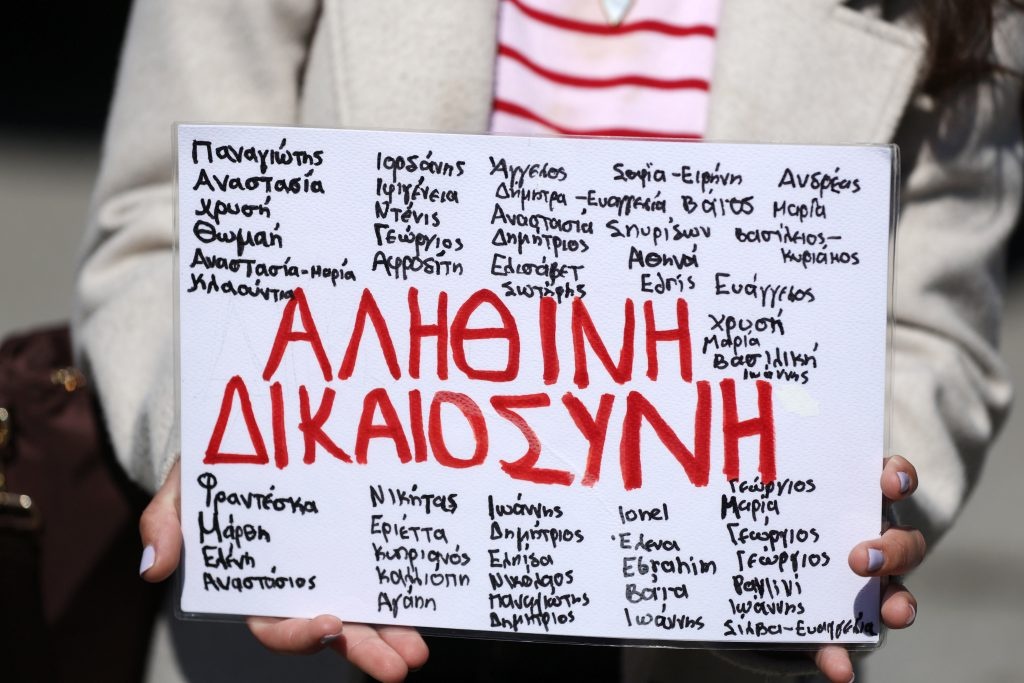 Παναγιώτης
Αναστασία
Χρυσή
Θωμαή
Αναστασία-Μαρία
Κλαούντια
Ιορδάνης
Ιφιγένεια
Ντένις
Γεώργιος
Αφροδίτη
Άγγελος
Δήμητρα-Ευαγγελία
Αναστασία
Δημήτριος
Ελισάβετ
Σωτήρης
Σοφία-Ειρήνη
Βάιος
Σπυρίδων
Αθηνά
Ελπίς
Ανδρέας
Μαρία
Βασίλειος-
Κυριάκος
Ευάγγελος
Χρυσή
Μαρία
Βασιλική
Ιωάννης
ΑΛΗΘΙΝΗ
ΔΙΚΑΙΟΣΥΝΗ
Φραντέσκα
Μάρθη
Ελένη
Αναστάσιος
Νικήτας
Εριέττα
Κυπριανός
Καλλιόπη
Αγάπη
Ιωάννης
Δημήτριος
Ελπίδα
Νικόλαος
Παναγιώτης
Δημήτριος
Ionel
Έλενα
Ebrahim
Βάϊα
Ιωάννης
Γεώργιος
Μαρία
Γεώργιος
Γεώργιος
Pavlini
Ιωάννης
Σίλβια-Ευαγγελία